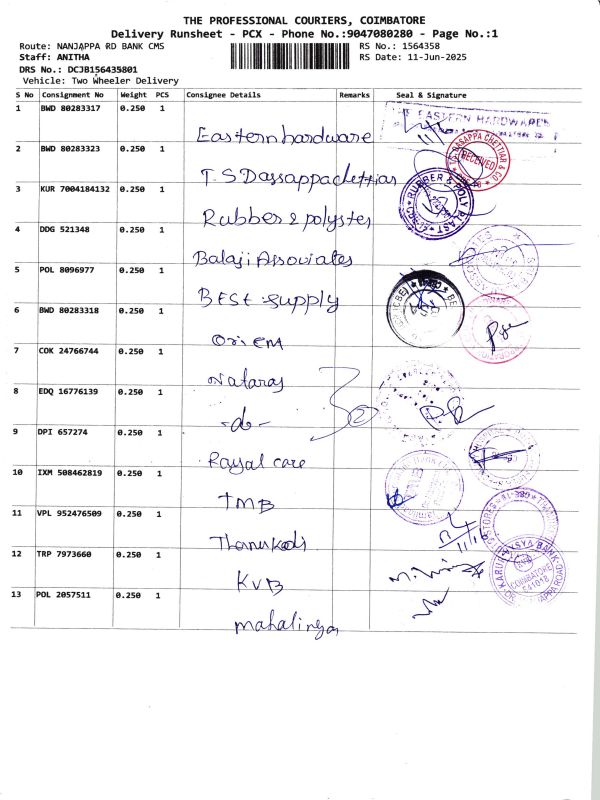 THE PROFESSIONAL COURIERS, COIMBATORE
Delivery Runsheet - PCX - Phone No.:9047080280 - Page No.:1
Route: NANJAPPA RD BANK CMS
RS No.: 1564358
Staff: ANITHA
RS Date: 11-Jun-2025
DRS No.: DCJB156435801
Vehicle: Two Wheeler Delivery
S No Consignment No Weight PCS Consignee Details Remarks Seal & Signature
1 BWD 80283317 0.250 1
EASTERN HARDWARES
Eastern hardware
2 BWD 80283323 0.250 1
RECEIVED
T.S Dassappa chettiar
3 KUR 7004184132 0.250 1
RUBBER & POLY PLAST
Rubber & polyster
4 DDG 521348 0.250 1
Balaji Associates
5 POL 8096977 0.250 1
BEST supply
6 BWD 80283318 0.250 1
Orient
7 COK 24766744 0.250 1
Nataraj
8 EDQ 16776139 0.250 1
-do-
9 DPI 657274 0.250 1
Raysal care
10 IXM 508462819 0.250 1
TMB
11 VPL 952476509 0.250 1
Thanuskodi
12 TRP 7973660 0.250 1
KVB
COIMBATORE
641018
13 POL 2057511 0.250 1
mahalingam